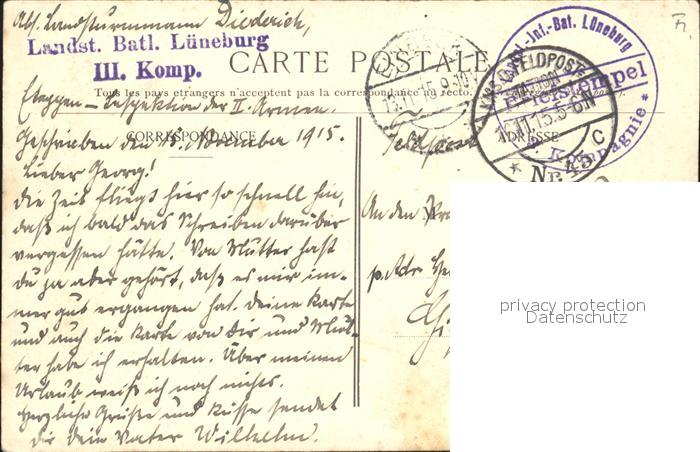 Abs. Landsturmmann Diederich,
Landst. Batl. Lüneburg
III. Komp.
CARTE POSTALE
Tous les pays étrangers n'acceptent pas la correspondance au recto.
Etappen-Inspektion der II. Armee.
CORRESPONDANCE
Geschrieben den 15. November 1915.
Lieber Georg!
Die Zeit fliegt hier so schnell hin,
daß ich bald das Schreiben darüber
vergessen hätte. Von Mutter hast
du ja aber gehört, daß es mir im-
mer gut ergangen hat. Deine Karte
und auch die Karte von Dir und Mut-
ter habe ich erhalten. Über meinen
Urlaub weiß ich noch nichts.
Herzliche Grüße und Küsse sendet
Dir dein Vater Wilhelm.
Inf.-Bat. Lüneburg
Briefstempel
Kompagnie *
FELDPOST
* Nr.
C
ADRESSE
Feldpost
An den
p. Adr.
privacy protection
Datenschutz